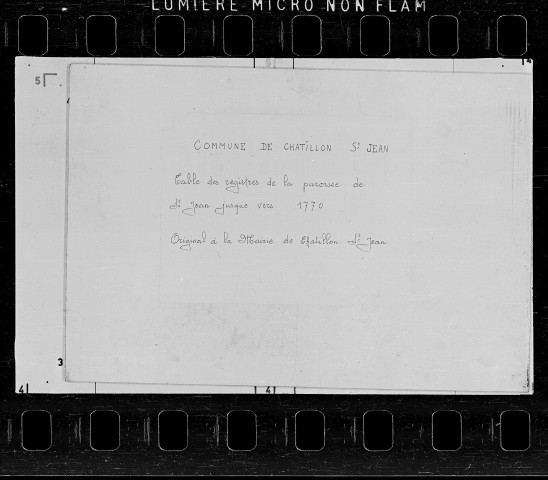 LUMIERE MICRO NON FLAM
5
COMMUNE DE CHATILLON St JEAN
Table des registres de la paroisse de
St Jean jusque vers 1770
Original à la Mairie de Chatillon St Jean
3
4
4